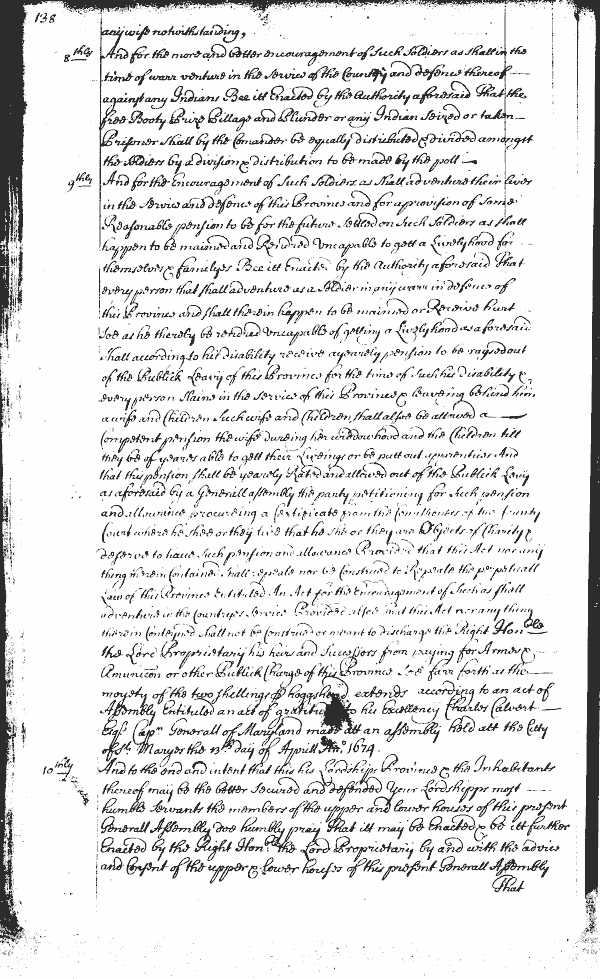 138
any wise notwithstanding,
8thly And for the more and better encouragement of Such Soldiers as shall in the
time of warr venture in the Service of the Country and defence thereof
against any Indians Bee itt Enacted by the Authority aforesaid That the
free Booty Prize Pillage and Plunder or any Indian Seized or taken
Prisoner Shall by the Comander be equally distributed & divided amongst
the Soldiers by a division & distribution to be made by the poll
9thly And for the Encouragement of Such Soldiers as Shall adventure their lives
in the Service and defence of this Province and for a provision of Some
Reasonable pension to be for the future Setled on Such Soldiers as shall
happen to be maimed and Rendred Uncapable to gett a Livelyhood for
themselves & familyes Bee itt Enacted by the Authority aforesaid That
every person that shall adventure as a Soldier in any warr in defence of
this Province and shall therein happen to be maimed or Receive hurt
soe as he thereby be rendred uncapable of getting a Livelyhood as aforesaid
shall according to his disability receive a yearely pension to be raysed out
of the Publick Leavy of this Province for the time of Such his disability &
every person Slaine in the Service of this Province & leaveing behind him
a wife and Children Such wife and Children shall alsoe be allowed a
Competent pension the wife dureing her widdowhood and the Children till
they be of yeares able to gett their Liveings or be putt out apprentices And
that this pension shall be yearely Rated and allowed out of the Publick Levy
as aforesaid by a Generall assembly the party petitioning for Such pension
and allowance procureing a Certificate from the Comissioners of the County
Court where he shee or they live that he she or they are Objects of Charity &
deserve to have such pension and allowance Provided that this Act nor any
thing therein Contained Shall repeale nor be Construed to Repeale the perpetuall
Law of this Province Entituled An Act for the Encouragement of Such as shall
adventure in the Countryes Service Provided alsoe that this Act nor any thing
therein Conteyned shall not be Construed or meant to discharge the Right Honble
the Lord Proprietary his heirs and Successors from paying for Armes &
Amunicon or other Publick Charge of this Province Soe farr forth as the
moyety of the two shellings hoggshead extends according to an act of
Assembly Entituled an act of gratitude to his Excellency Charles Calvert
Esqr Capn Generall of Maryland made att an assembly held att the Citty
of St Maryes the day of Aprill 1674.
10thly And to the end and intent that this his Lordships Province & the Inhabitants
thereof may be the better Secured and defended Your Lordshipps most
humble Servants the members of the upper and lower houses of this present
Generall Assembly doe humbly pray That itt may be Enacted & be itt further
Enacted by the Right Honble the Lord Proprietary by and with the advice
and Consent of the upper & Lower houses of this present Generall Assembly
That